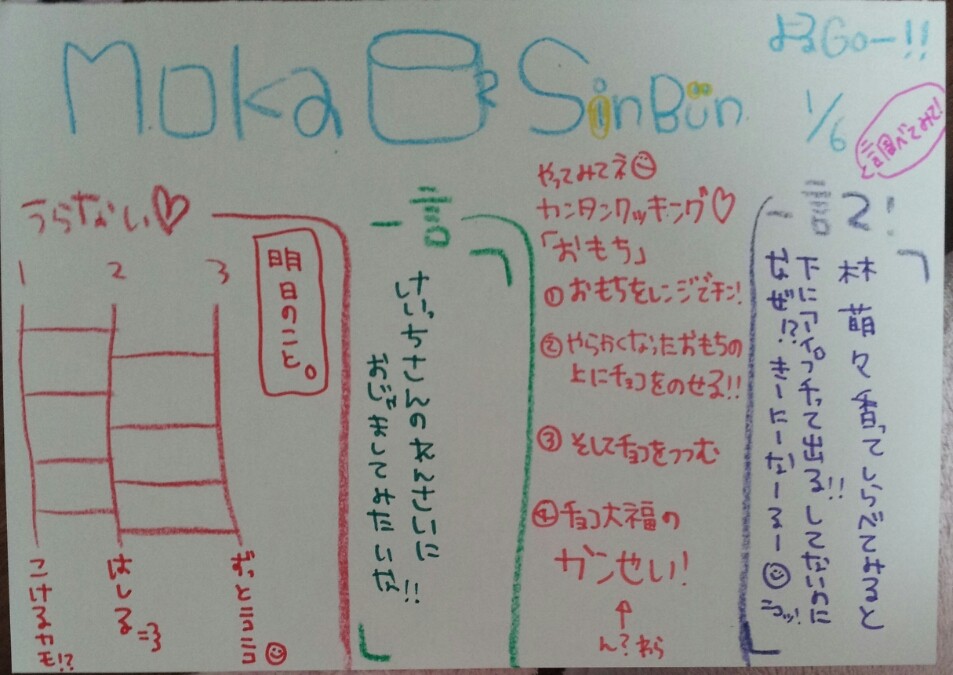 MOKa SinBün
よるGoー!!
1/6
調べてみて!
うらない♡
明日のこと。
1 2 3
こけるカモ!?
はしる
ずっとニコニコ
一言
けいっちさんのれんさいに
おじゃましてみたいな!!
やってみてネ
カンタンクッキング♡
「おもち」
①おもちをレンジでチン!
②やらかくなったおもちの
上にチョコをのせる!!
③そしてチョコをつつむ
④チョコ大福の
カンせい!
↑
ん?わら
一言2!
林萌々香ってしらべてみると
下にワイプッチって出る!!してないのに
なぜ!?きーにーなーるー
ニコッ!